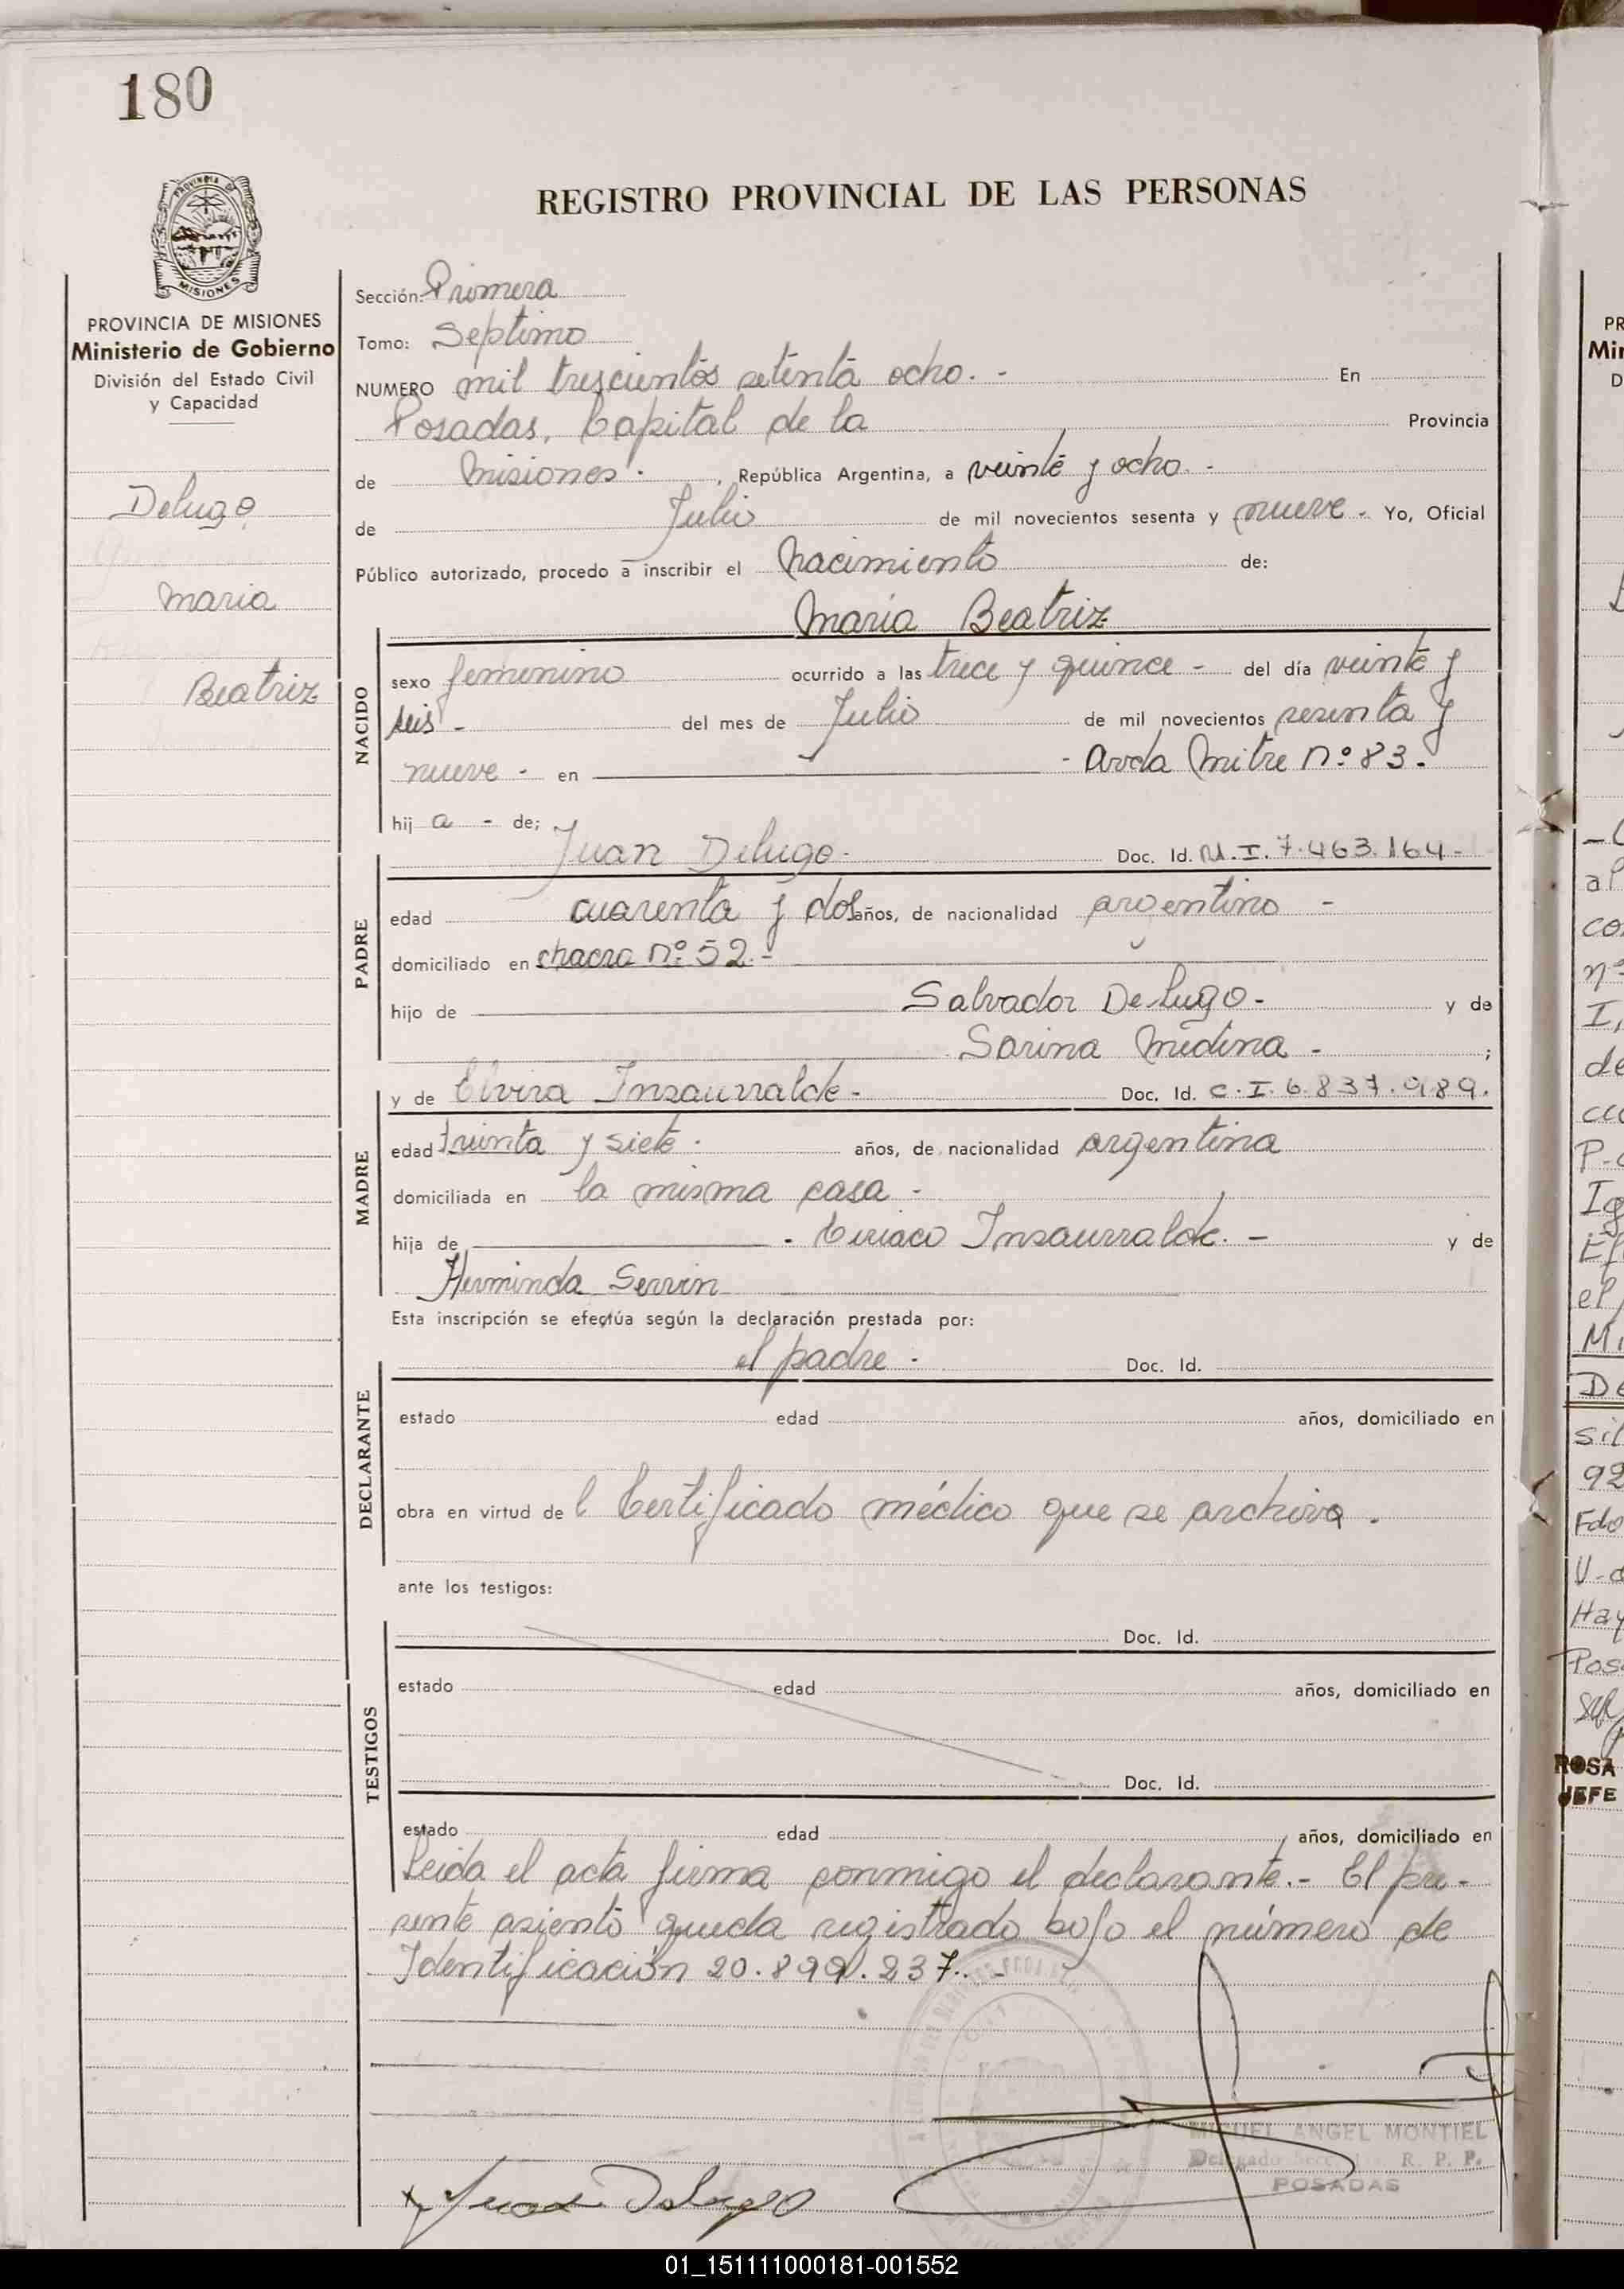 180
REGISTRO PROVINCIAL DE LAS PERSONAS
PROVINCIA DE
MISIONES
PROVINCIA DE MISIONES
Ministerio de Gobierno
División del Estado Civil
y Capacidad
Delugo
Maria
Beatriz
Sección: Primera
Tomo: Septimo
NUMERO mil trescientos setenta ocho. - En
Posadas, Capital de la Provincia
de Misiones. , República Argentina, a veinte y ocho. -
de Julio de mil novecientos sesenta y nueve. Yo, Oficial
Público autorizado, procedo a inscribir el Nacimiento de:
Maria Beatriz
NACIDO
sexo femenino ocurrido a las trece y quince - del día veinte y
seis - del mes de Julio de mil novecientos sesenta y
nueve - en - Avda Mitre Nº 83.
hij a - de;
Juan Delugo. Doc. Id. M.I. 7.463.164-
PADRE
edad cuarenta y dos años, de nacionalidad argentino -
domiciliado en chacra Nº 52. -
hijo de Salvador Delugo. - y de
Sarina Medina - ;
y de Elvira Insaurralde - Doc. Id. C.I. 6.837.989.
MADRE
edad treinta y siete. años, de nacionalidad argentina
domiciliada en la misma casa -
hija de - Ciriaco Insaurralde. - y de
Herminda Servin
Esta inscripción se efectúa según la declaración prestada por:
el padre . Doc. Id.
DECLARANTE
estado edad años, domiciliado en
obra en virtud de l Certificado médico que se archiva .
ante los testigos:
Doc. Id.
TESTIGOS
estado edad años, domiciliado en
Doc. Id.
estado edad años, domiciliado en
Leida el acta firma conmigo el declarante.- El pre-
sente asiento queda registrado bajo el número de
Identificación 20.899.237. -
MIGUEL ANGEL MONTIEL
Delegado R. P. P.
POSADAS
Juan Delugo
ROSA
JEFE
01_151111000181-001552